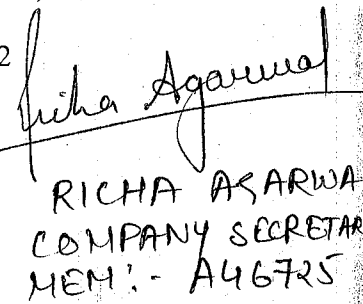 2
Richa Agarwal
RICHA AGARWA
COMPANY SECRETAR
MEM:- A46725